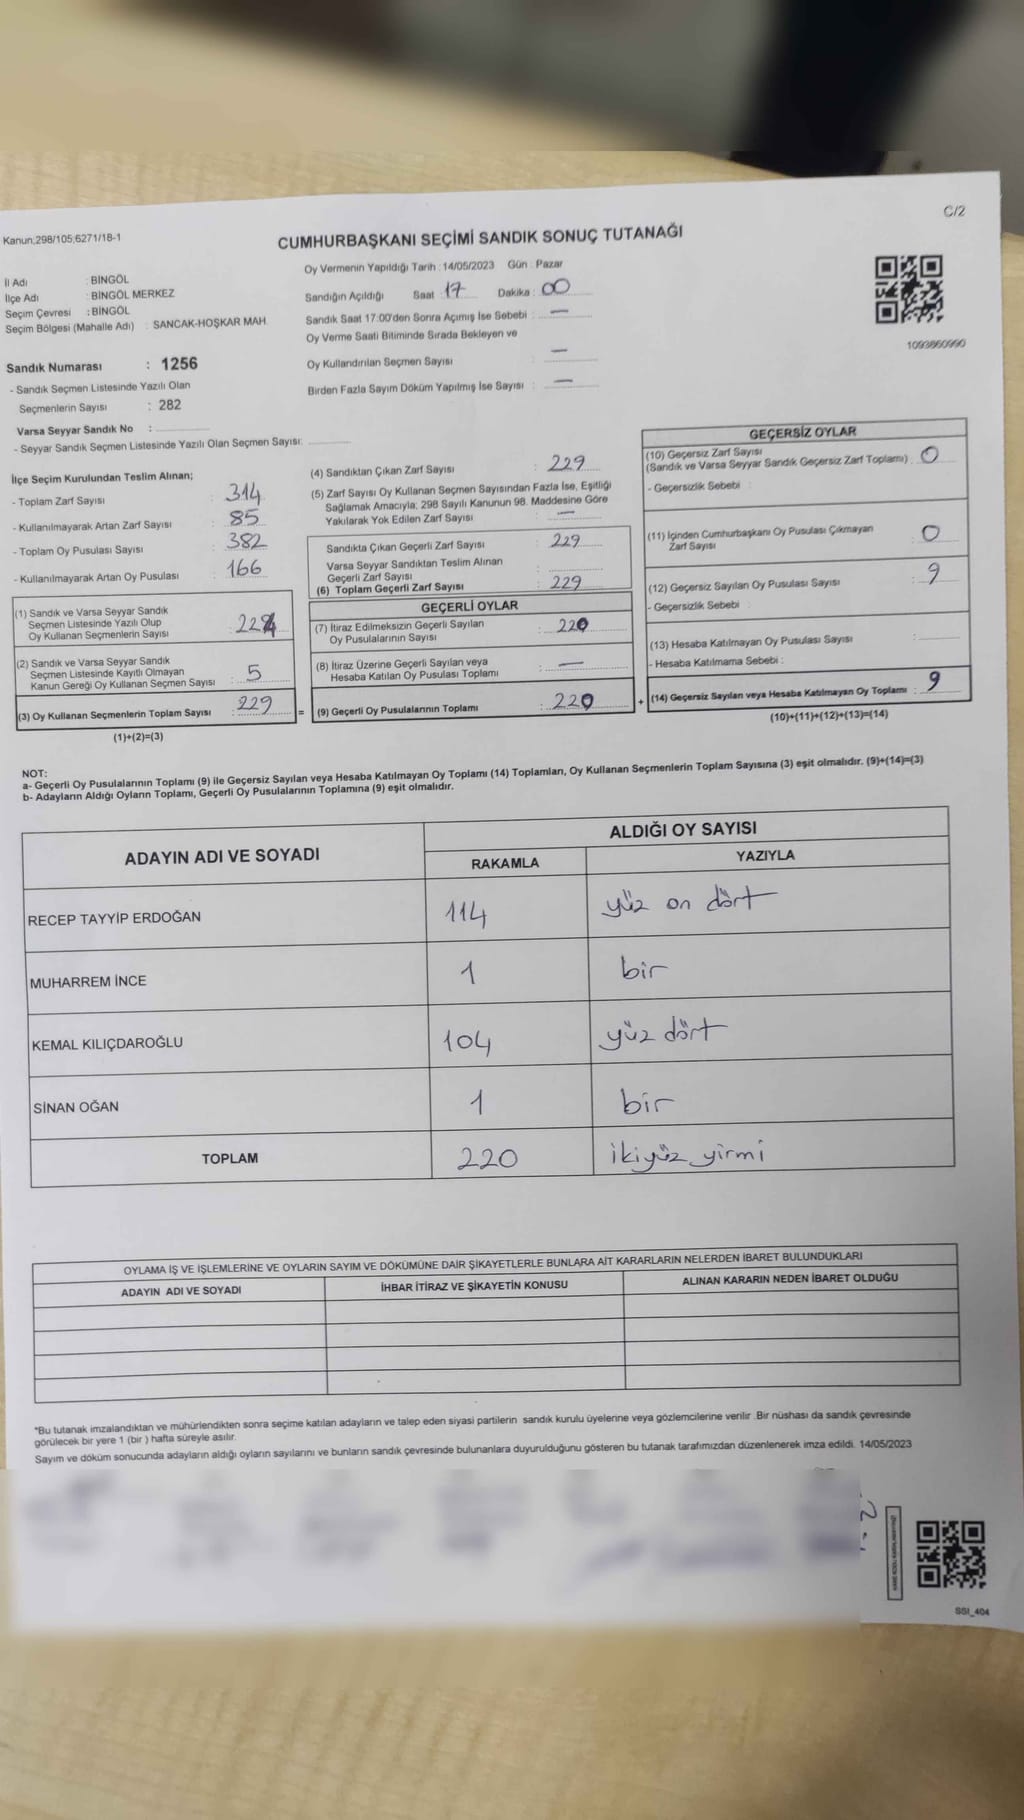 C/2
Kanun;298/105;6271/18-1
CUMHURBAŞKANI SEÇİMİ SANDIK SONUÇ TUTANAĞI
İl Adı : BİNGÖL
İlçe Adı : BİNGÖL MERKEZ
Seçim Çevresi : BİNGÖL
Seçim Bölgesi (Mahalle Adı) : SANCAK-HOŞKAR MAH.
Oy Vermenin Yapıldığı Tarih : 14/05/2023 Gün : Pazar
Sandığın Açıldığı Saat 17 Dakika : 00
Sandık Saat 17:00'den Sonra Açımış İse Sebebi : —
Oy Verme Saati Bitiminde Sırada Bekleyen ve
Oy Kullandırılan Seçmen Sayısı : —
Birden Fazla Sayım Döküm Yapılmış İse Sayısı : —
1093860990
Sandık Numarası : 1256
- Sandık Seçmen Listesinde Yazılı Olan
Seçmenlerin Sayısı : 282
Varsa Seyyar Sandık No :
- Seyyar Sandık Seçmen Listesinde Yazılı Olan Seçmen Sayısı:
İlçe Seçim Kurulundan Teslim Alınan;
- Toplam Zarf Sayısı : 314
- Kullanılmayarak Artan Zarf Sayısı : 85
- Toplam Oy Pusulası Sayısı : 382
- Kullanılmayarak Artan Oy Pusulası : 166
(1) Sandık ve Varsa Seyyar Sandık
Seçmen Listesinde Yazılı Olup
Oy Kullanan Seçmenlerin Sayısı : 224
(2) Sandık ve Varsa Seyyar Sandık
Seçmen Listesinde Kayıtlı Olmayan
Kanun Gereği Oy Kullanan Seçmen Sayısı : 5
(3) Oy Kullanan Seçmenlerin Toplam Sayısı : 229
(1)+(2)=(3)
(4) Sandıktan Çıkan Zarf Sayısı : 229
(5) Zarf Sayısı Oy Kullanan Seçmen Sayısından Fazla İse, Eşitliği
Sağlamak Amacıyla; 298 Sayılı Kanunun 98. Maddesine Göre
Yakılarak Yok Edilen Zarf Sayısı : —
Sandıkta Çıkan Geçerli Zarf Sayısı : 229
Varsa Seyyar Sandıktan Teslim Alınan
Geçerli Zarf Sayısı :
(6) Toplam Geçerli Zarf Sayısı : 229
GEÇERLİ OYLAR
(7) İtiraz Edilmeksizin Geçerli Sayılan
Oy Pusulalarının Sayısı : 220
(8) İtiraz Üzerine Geçerli Sayılan veya
Hesaba Katılan Oy Pusulası Toplamı : —
= (9) Geçerli Oy Pusulalarının Toplamı : 220
GEÇERSİZ OYLAR
(10) Geçersiz Zarf Sayısı
(Sandık ve Varsa Seyyar Sandık Geçersiz Zarf Toplamı) : 0
- Geçersizlik Sebebi :
(11) İçinden Cumhurbaşkanı Oy Pusulası Çıkmayan
Zarf Sayısı : 0
(12) Geçersiz Sayılan Oy Pusulası Sayısı : 9
- Geçersizlik Sebebi :
(13) Hesaba Katılmayan Oy Pusulası Sayısı :
- Hesaba Katılmama Sebebi :
+ (14) Geçersiz Sayılan veya Hesaba Katılmayan Oy Toplamı : 9
(10)+(11)+(12)+(13)=(14)
NOT:
a- Geçerli Oy Pusulalarının Toplamı (9) ile Geçersiz Sayılan veya Hesaba Katılmayan Oy Toplamı (14) Toplamları, Oy Kullanan Seçmenlerin Toplam Sayısına (3) eşit olmalıdır. (9)+(14)=(3)
b- Adayların Aldığı Oyların Toplamı, Geçerli Oy Pusulalarının Toplamına (9) eşit olmalıdır.
ADAYIN ADI VE SOYADI ALDIĞI OY SAYISI
RAKAMLA YAZIYLA
RECEP TAYYİP ERDOĞAN 114 yüz on dört
MUHARREM İNCE 1 bir
KEMAL KILIÇDAROĞLU 104 yüz dört
SİNAN OĞAN 1 bir
TOPLAM 220 ikiyüz yirmi
OYLAMA İŞ VE İŞLEMLERİNE VE OYLARIN SAYIM VE DÖKÜMÜNE DAİR ŞİKAYETLERLE BUNLARA AİT KARARLARIN NELERDEN İBARET BULUNDUKLARI
ADAYIN ADI VE SOYADI İHBAR İTİRAZ VE ŞİKAYETİN KONUSU ALINAN KARARIN NEDEN İBARET OLDUĞU
*Bu tutanak imzalandıktan ve mühürlendikten sonra seçime katılan adayların ve talep eden siyasi partilerin sandık kurulu üyelerine veya gözlemcilerine verilir .Bir nüshası da sandık çevresinde
görülecek bir yere 1 (bir ) hafta süreyle asılır.
Sayım ve döküm sonucunda adayların aldığı oyların sayılarını ve bunların sandık çevresinde bulunanlara duyurulduğunu gösteren bu tutanak tarafımızdan düzenlenerek imza edildi. 14/05/2023
SSI_404